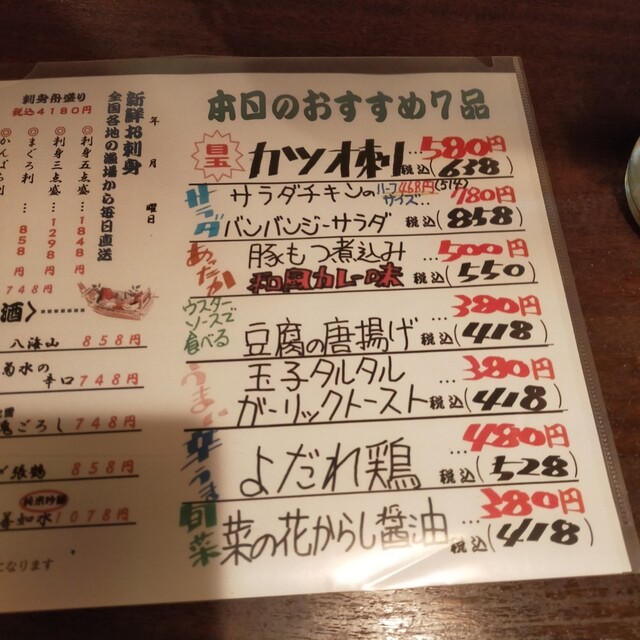 本日のおすすめ7品
目玉
カツオ刺…580円
税込(638)
サラダ
サラダチキンの
ハーフサイズ…468円(514)
バンバンジーサラダ
…780円
税込(858)
あったか
豚もつ煮込み
和風カレー味
…500円
税込(550)
ウスターソースで食べる
豆腐の唐揚げ
…380円
税込(418)
うまい
玉子タルタル
ガーリックトースト
…380円
税込(418)
よだれ鶏
…480円
税込(528)
旬菜
菜の花からし醤油
…380円
税込(418)
年 月 曜日
新鮮お刺身
全国各地の漁場から毎日直送
刺身舟盛り
税込4180円
◎刺身五点盛…1848円
◎刺身三点盛…1298円
◎まぐろ刺…858円
◎かんぱち刺
748円
酒〉
八海山 858円
菊水の辛口 748円
鬼ごろし 748円
張鶴 858円
純米吟醸
善如水 1078円
になります